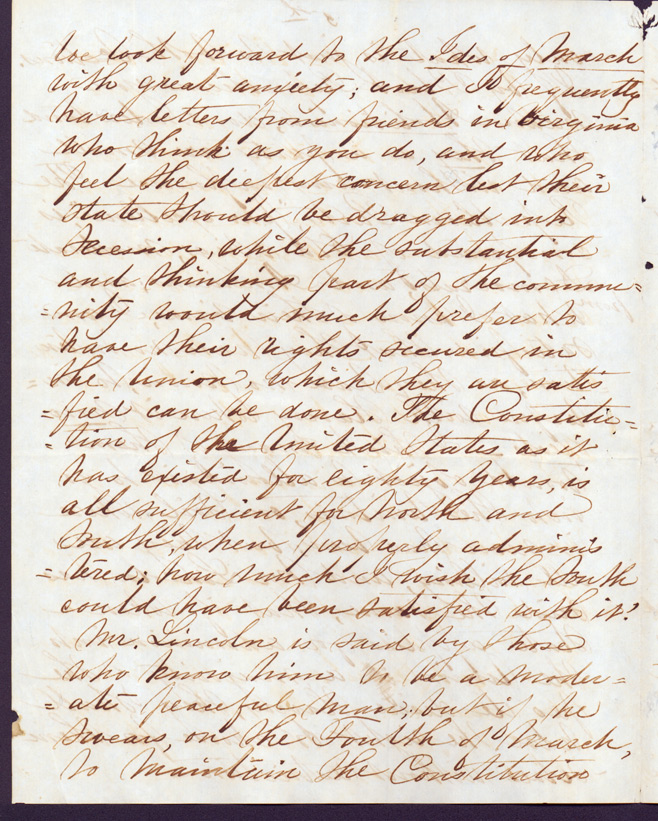 We look forward to the Ides of March
with great anxiety; and I frequently
have letters from friends in Virginia
who think as you do, and who
feel the deepest concern lest their
State should be dragged into
Secession, while the substantial
and thinking part of the commu=
=nity would much prefer to
have their rights secured in
= the Union, which they are satis
=fied can be done. The Constitu=
=tion of the United States as it
has existed for eighty years, is
all sufficient for North and
South, when properly adminis
=tered; how much I wish the South
could have been satisfied with it!
Mr. Lincoln is said by those
who know him to be a moder=
=ate peaceful man; but if he
swears, on the Fourth of March,
to maintain the Constitution